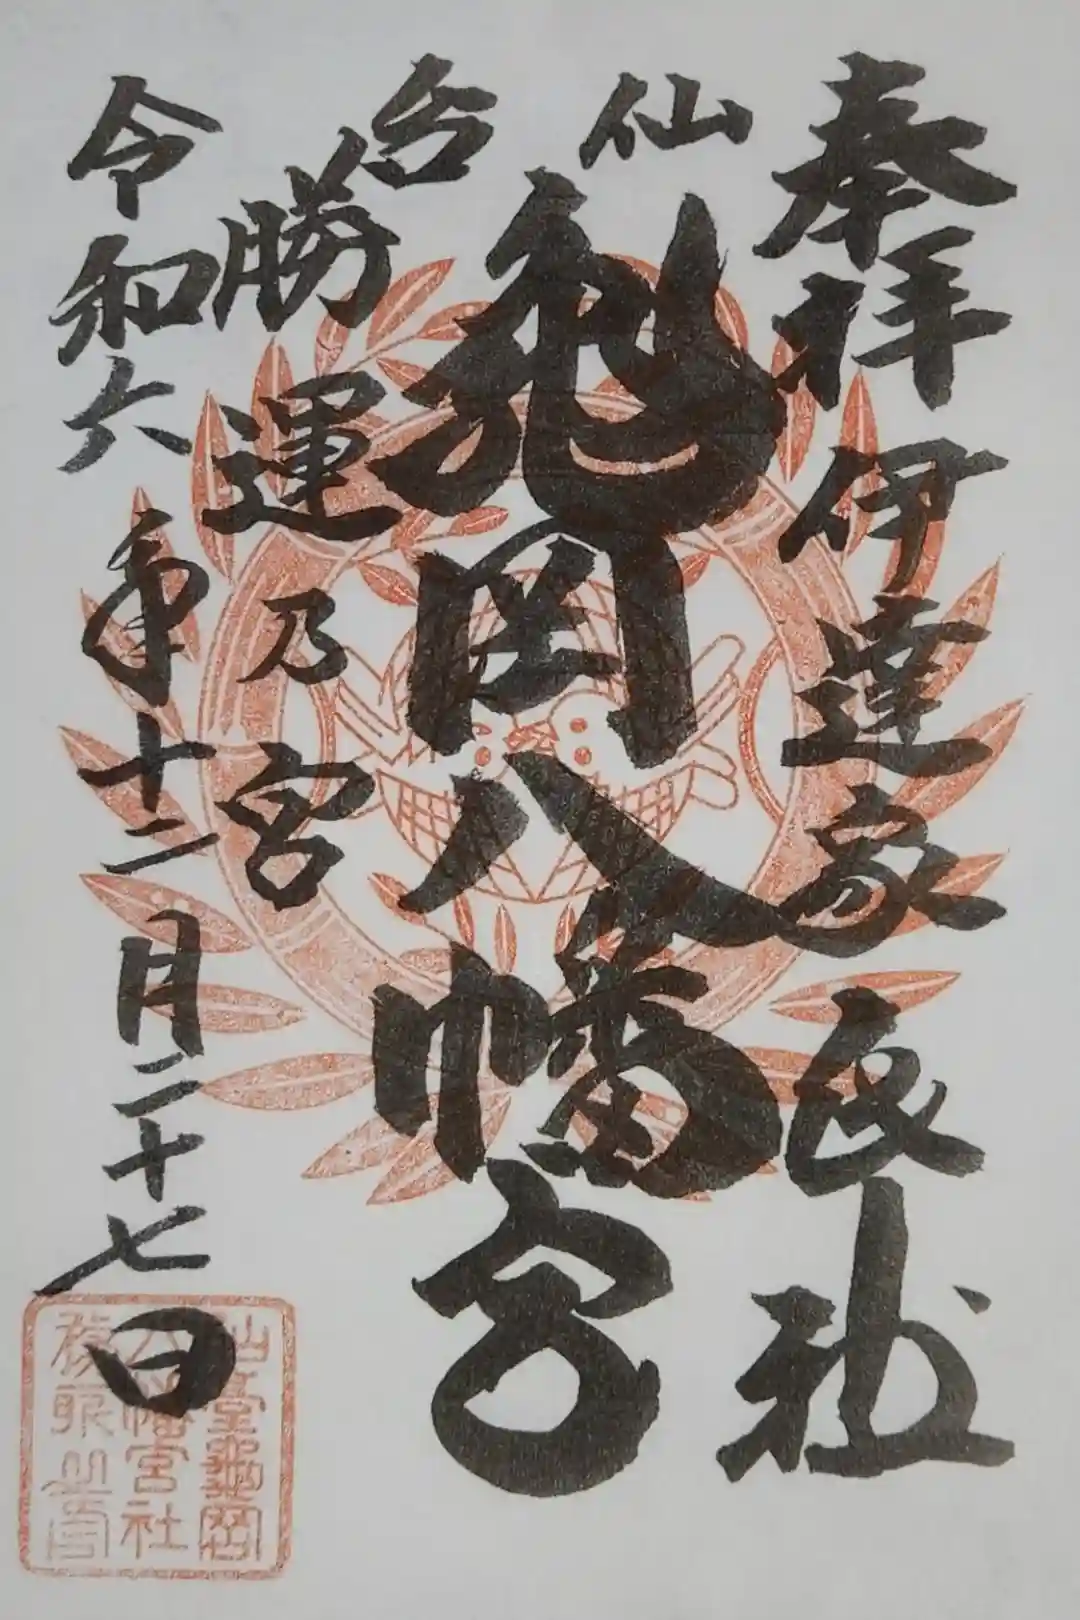 奉拝 伊達家氏社
仙台
亀岡八幡宮
勝運乃宮
令和六年十二月二十七日
仙臺龜岡
八幡宮社
務所之印